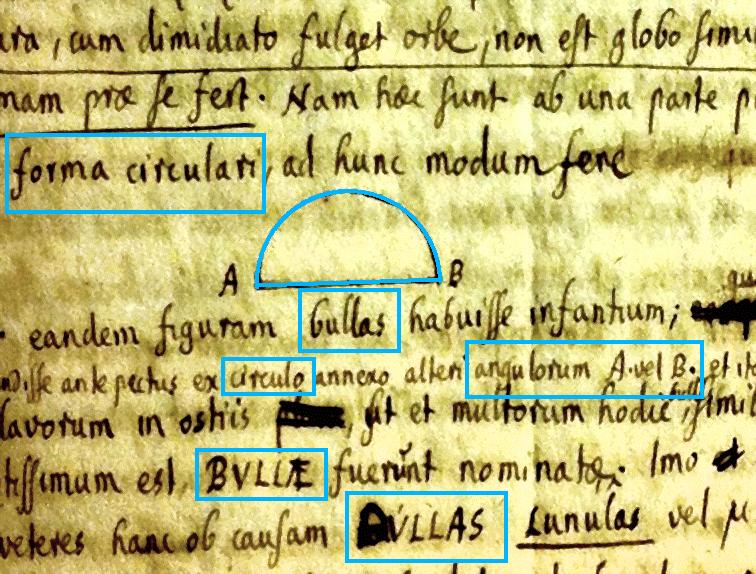 ara, cum dimidiato fulget orbe, non est globo simi
nam præ se fert. Nam hæc sunt ab una parte p
forma circulari, ad hunc modum fere
A B
qu
eandem figuram bullas habuisse infantium;
isse ante pectus ex circulo annexo alteri angulorum A. vel B. et it
lavorum in ostiis , ut et multorum hodie, simil
tissimum est, BVLLÆ fuerunt nominatæ. Imo
veteres hanc ob causam BVLLAS Lunulas vel